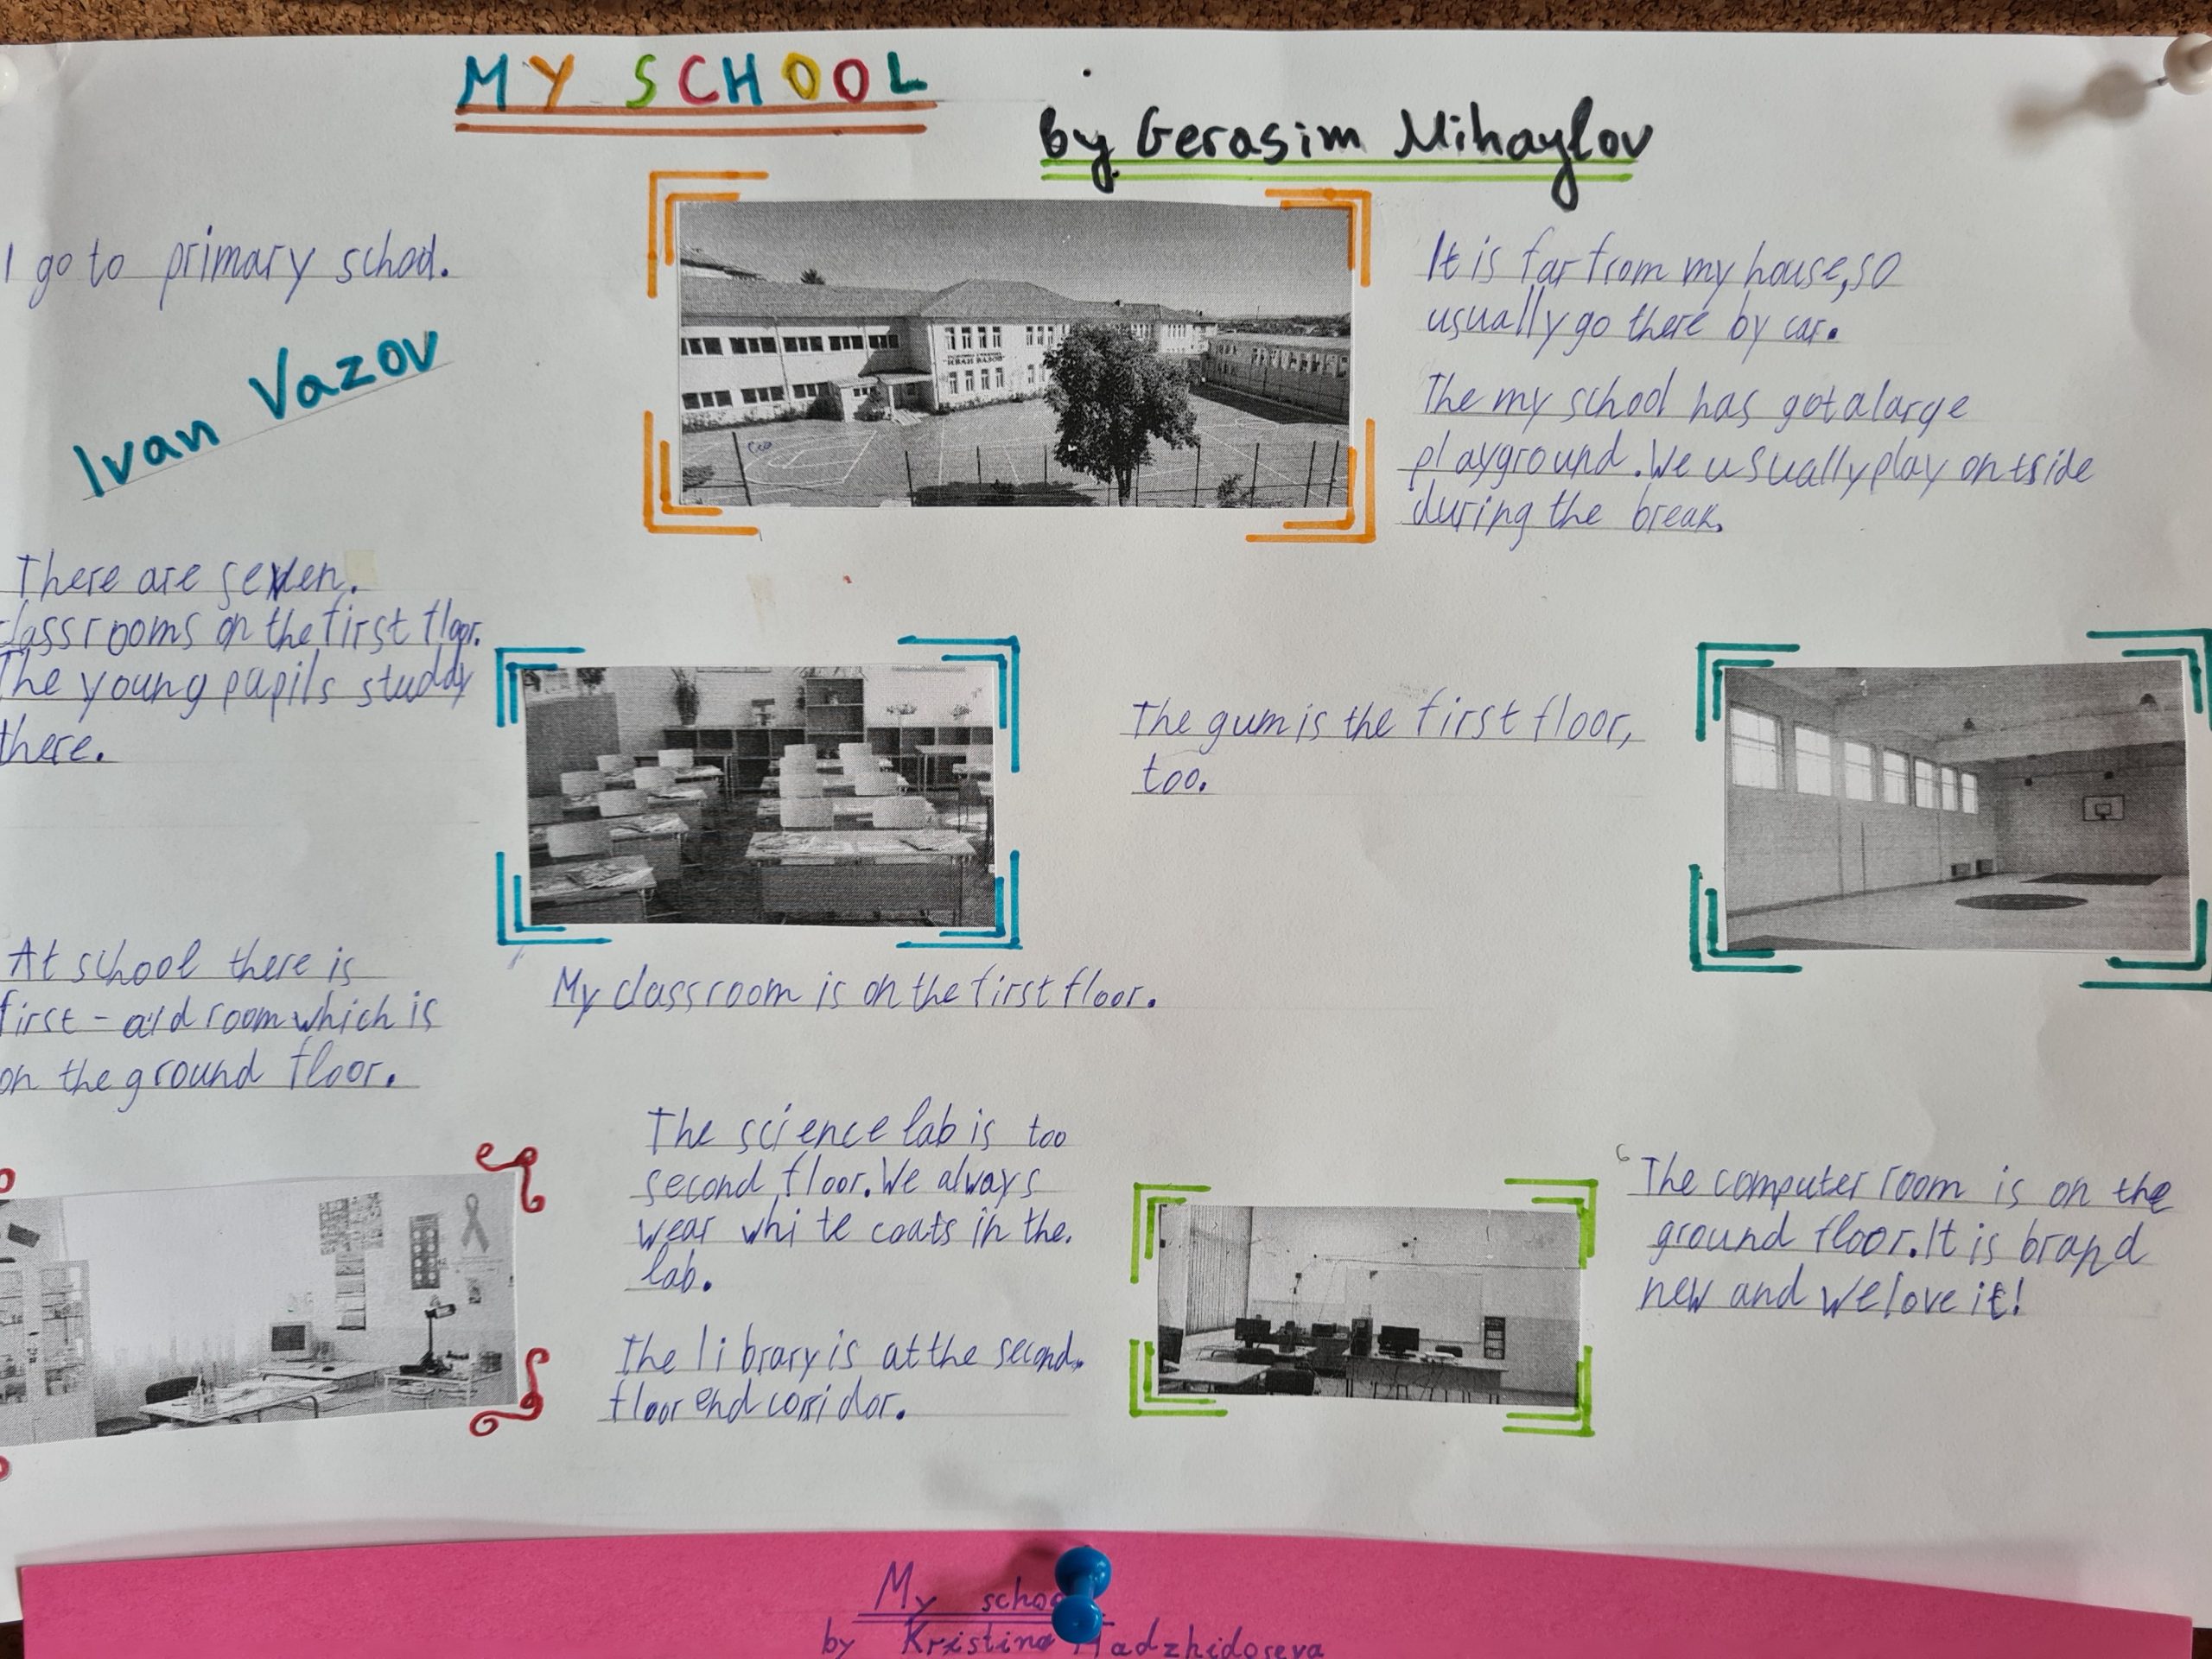 MY SCHOOL
by Gerasim Mihaylov
I go to primary school.
Ivan Vazov
"ИВАН ВАЗОВ"
It is far from my house, so
usually go there by car.
The my school has got a large
playground. We usually play ontside
during the break.
There are seven.
classrooms on the first floor.
The young pupils studdy
there.
The gum is the first floor,
too.
My classroom is on the first floor.
At school there is
first-aid room which is
on the ground floor.
The science lab is too
second floor. We always
wear white coats in the.
lab.
The library is at the second.
floor end corridor.
The computer room is on the
ground floor. It is brand
new and we love it!
My school
by Kristina